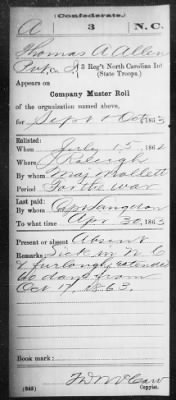 (Confederate.)
A 3 N.C.
Thomas A Allen
Pvt, Co. 3 Reg't North Carolina Inf
(State Troops.)
Appears on
Company Muster Roll
of the organization named above,
for Sept & Oct, 1863
Enlisted:
When July 15, 1862
Where Raleigh
By whom Maj Mallett
Period For the war
Last paid:
By whom Capt
To what time Apr 30, 1863
Present or absent Absent
Remarks: Sick in N.C
& furlough extended
60 days from
Oct 17, 1863.
Book mark:
(642)
Copyist.